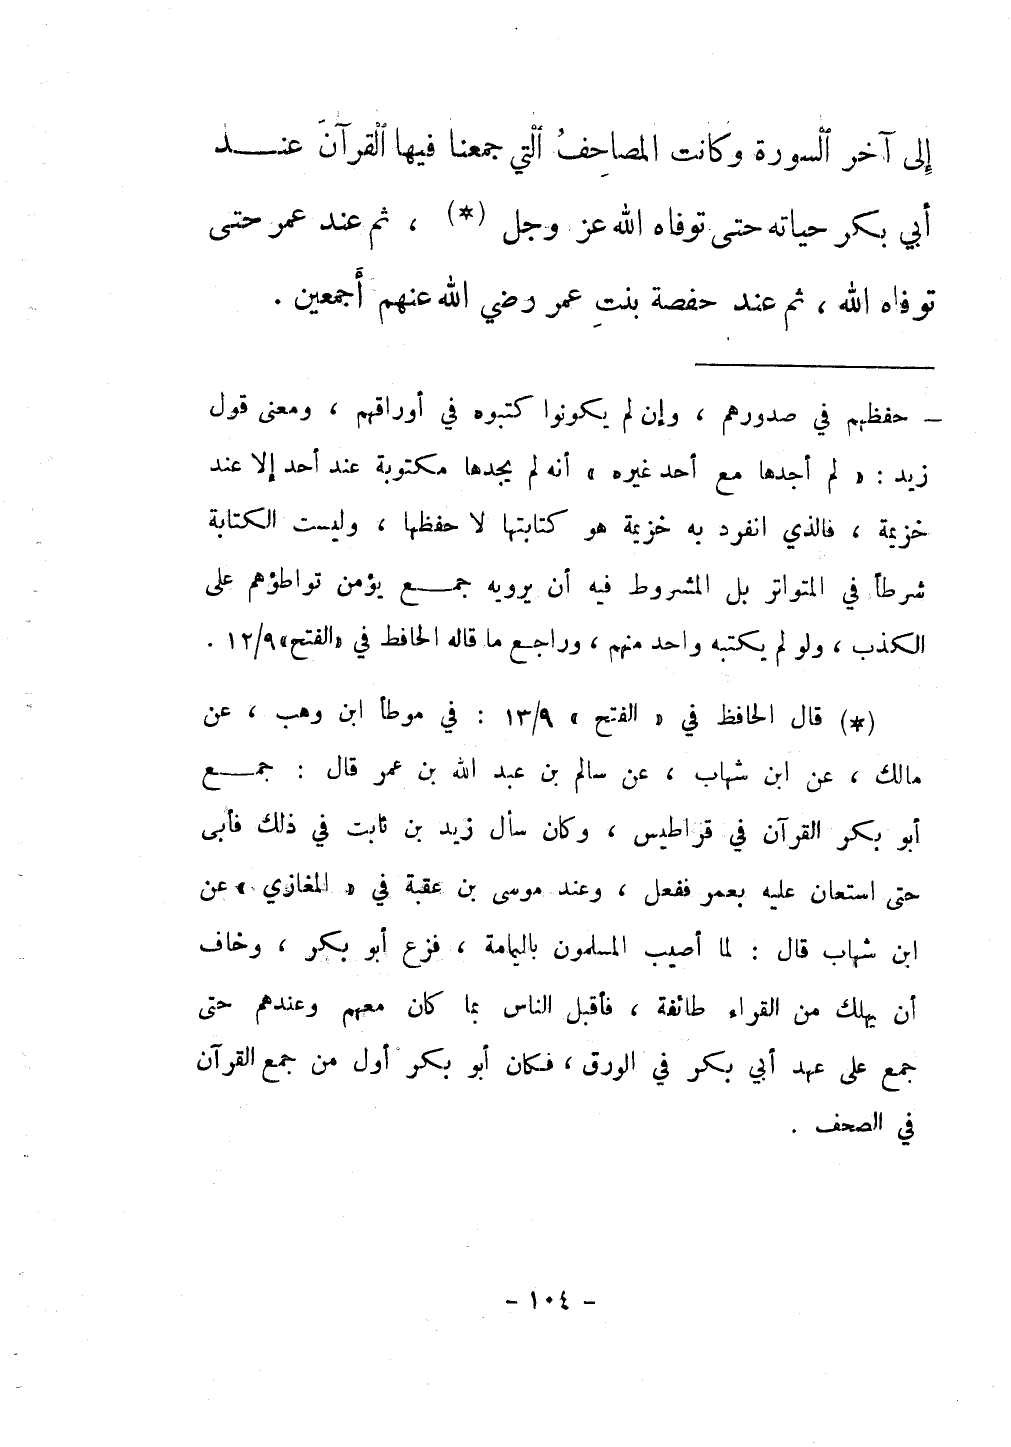 إلى آخر ٱلسورة وكانت المصاحِفُ ٱلتي جمعنا فيها ٱلقرآنَ عنـــد
أبي بكر حياته حتى توفاه الله عز وجل (*) ، ثم عند عمر حتى
توفاه الله ، ثم عند حفصة بنتِ عمر رضي الله عنهم أجمعين .
ــ حفظهم في صدورهم ، وإن لم يكونوا كتبوه في أوراقهم ، ومعنى قول
زيد : « لم أجدها مع أحد غيره » أنه لم يجدها مكتوبة عند أحد إلا عند
خزيمة ، فالذي انفرد به خزيمة هو كتابتها لا حفظها ، وليست الكتابة
شرطاً في المتواتر بل المشروط فيه أن يرويه جمـــع يؤمن تواطؤهم على
الكذب ، ولو لم يكتبه واحد منهم ، وراجـع ما قاله الحافظ في «الفتح» ١٢/٩ .
(*) قال الحافظ في « الفتح » ١٣/٩ : في موطأ ابن وهب ، عن
مالك ، عن ابن شهاب ، عن سالم بن عبد الله بن عمر قال : جمـــع
أبو بكر القرآن في قراطيس ، وكان سأل زيد بن ثابت في ذلك فأبى
حتى استعان عليه بعمر ففعل ، وعند موسى بن عقبة في « المغازي » عن
ابن شهاب قال : لما أصيب المسلمون باليمامة ، فزع أبو بكر ، وخاف
أن يهلك من القراء طائفة ، فأقبل الناس بما كان معهم وعندهم حتى
جمع على عهد أبي بكر في الورق ، فكان أبو بكر أول من جمع القرآن
في الصحف .
- ١٠٤ -